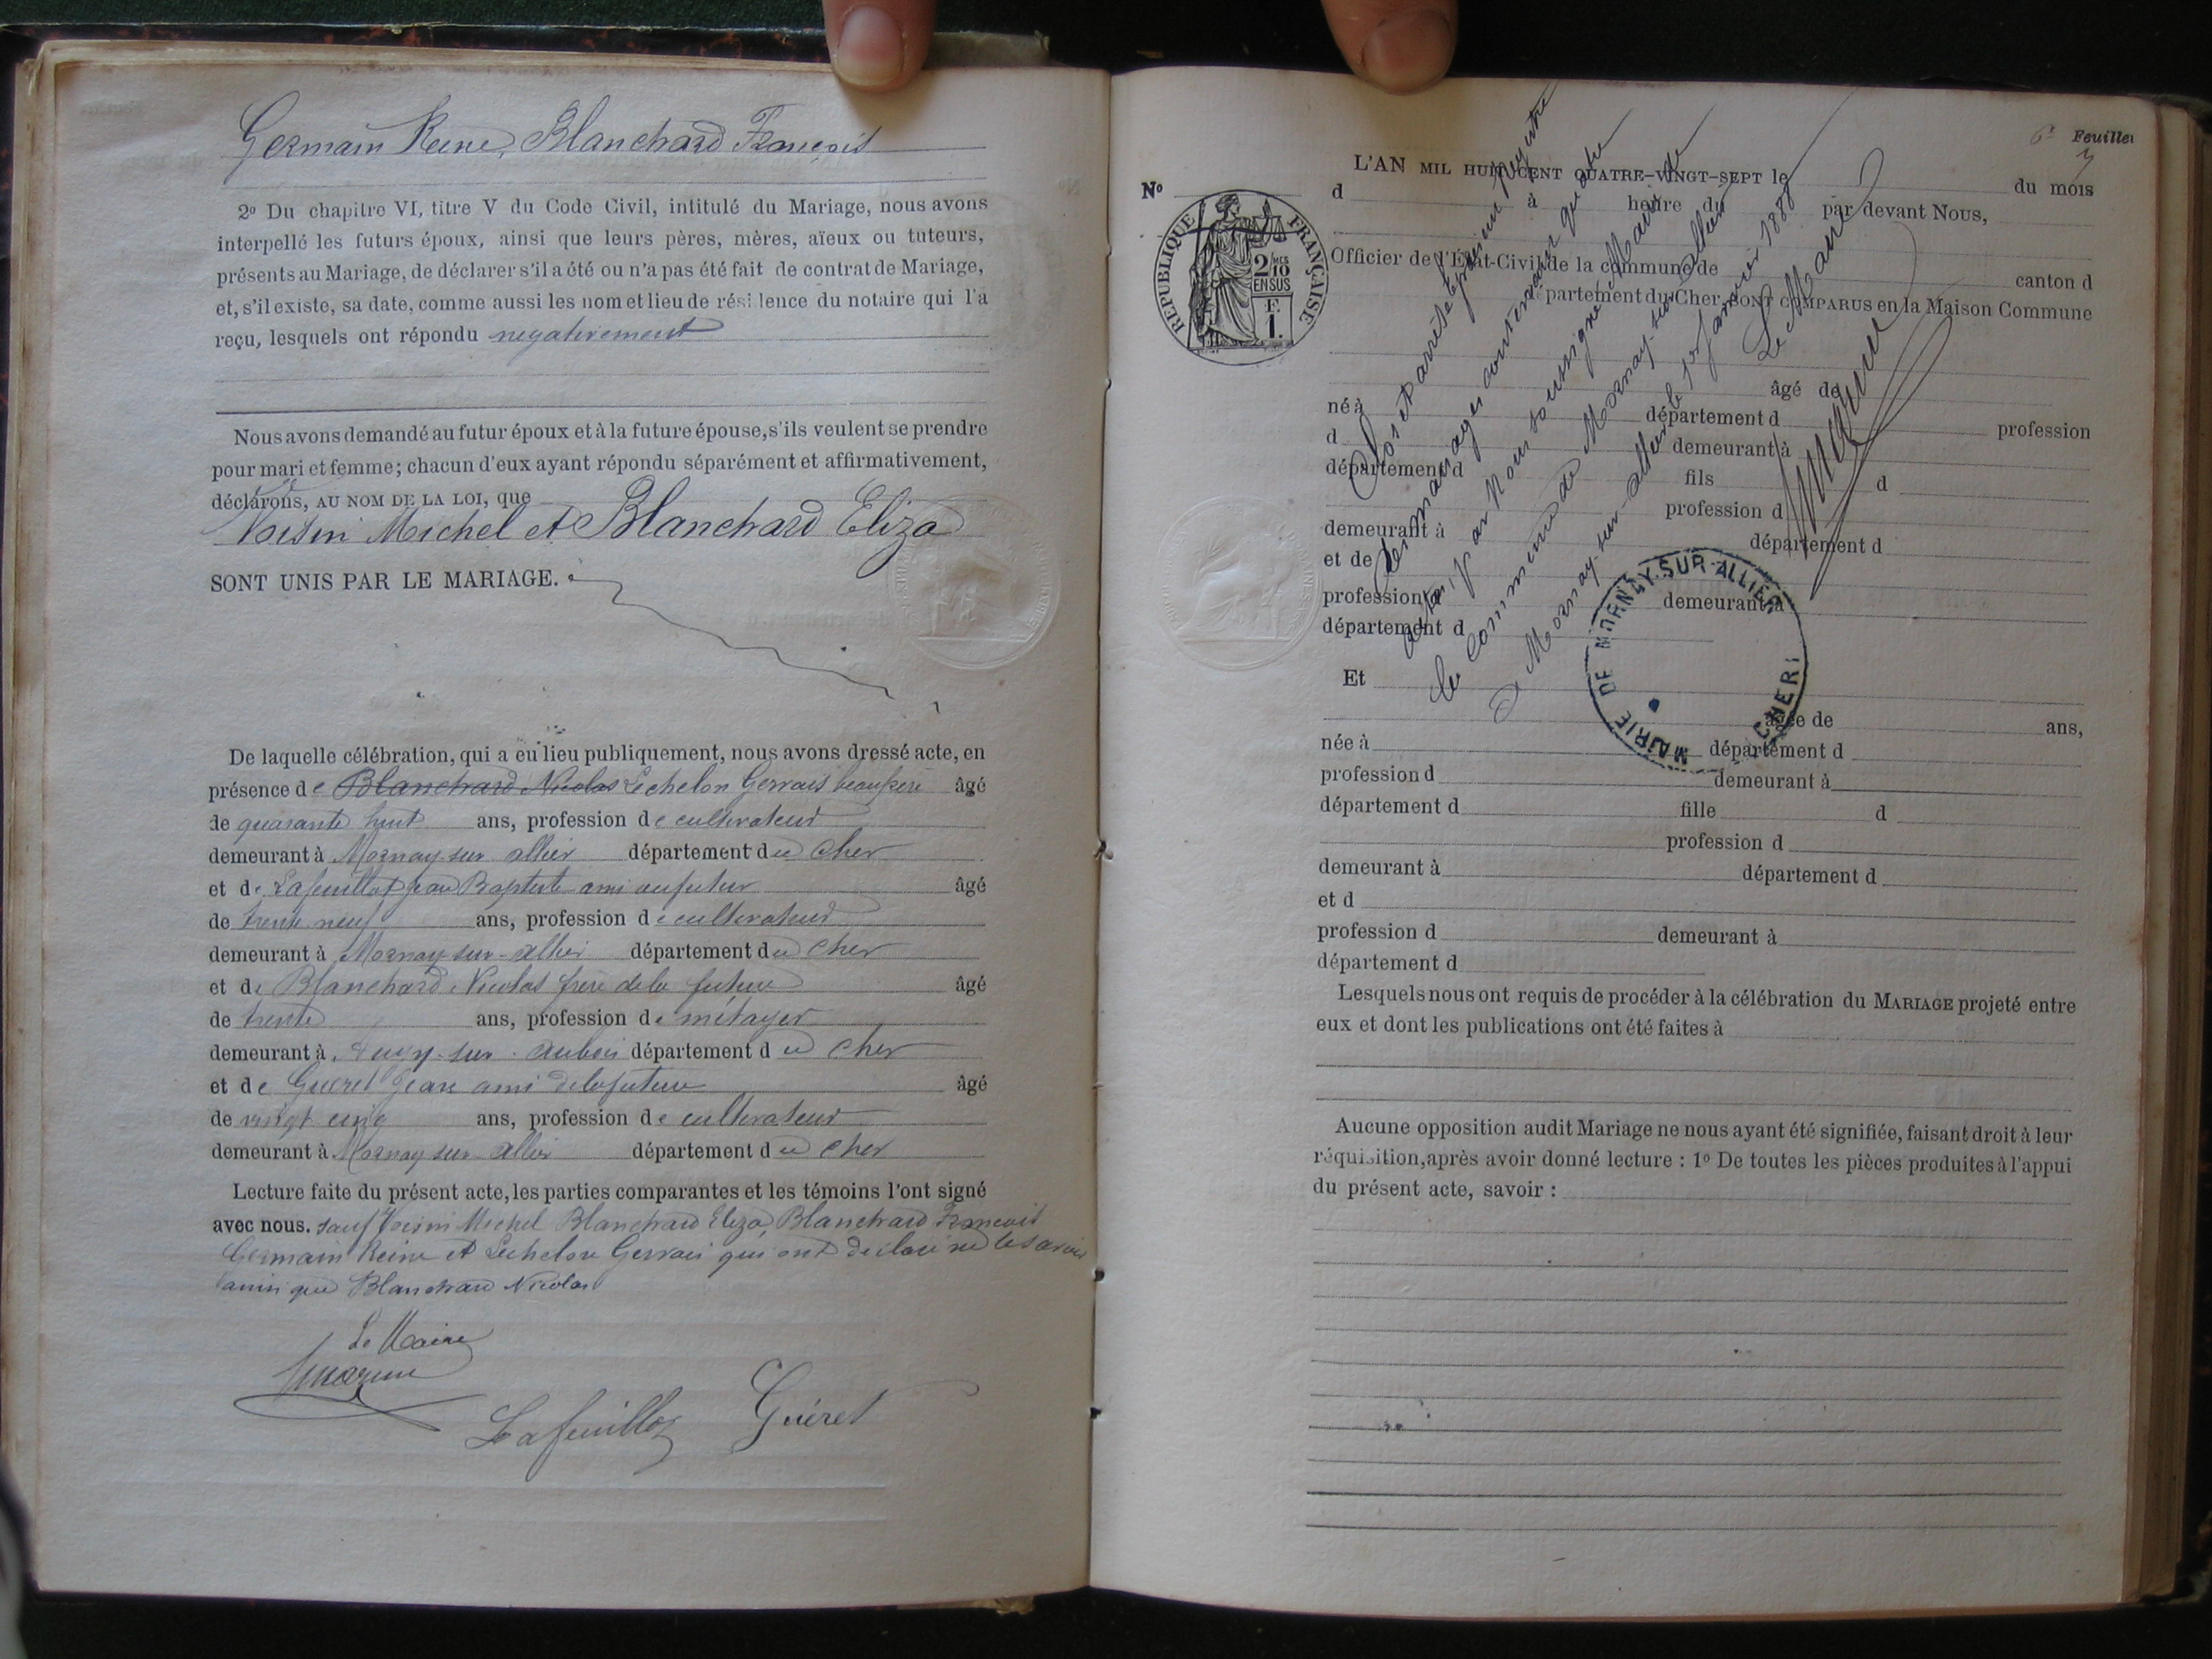 Germain Reine, Blanchard François
2º Du chapitre VI, titre V du Code Civil, intitulé du Mariage, nous avons
interpellé les futurs époux, ainsi que leurs pères, mères, aïeux ou tuteurs,
présents au Mariage, de déclarer s'il a été ou n'a pas été fait de contrat de Mariage,
et, s'il existe, sa date, comme aussi les nom et lieu de résidence du notaire qui l'a
reçu, lesquels ont répondu negativement
Nous avons demandé au futur époux et à la future épouse, s'ils veulent se prendre
pour mari et femme; chacun d'eux ayant répondu séparément et affirmativement,
déclarons, AU NOM DE LA LOI, que
Voisin Michel et Blanchard Eliza
SONT UNIS PAR LE MARIAGE.
De laquelle célébration, qui a eu lieu publiquement, nous avons dressé acte, en
présence de Blanchard Nicolas Lechelon Gervais beau père âgé
de quarante huit ans, profession de cultivateur
demeurant à Mornay sur allier département du Cher
et de Lafeuillot Jean Baptiste ami du futur âgé
de trente neuf ans, profession de cultivateur
demeurant à Mornay-sur-allier département du Cher
et de Blanchard Nicolas frère de la future âgé
de trente ans, profession de métayer
demeurant à sur aubois département du Cher
et de Gueret Jean ami de la future âgé
de vingt cinq ans, profession de cultivateur
demeurant à Mornay sur Allier département du Cher
Lecture faite du présent acte, les parties comparantes et les témoins l'ont signé
avec nous. sauf Voisin Michel Blanchard Eliza, Blanchard François
Germain Reine et Lechelon Gervais qui ont déclaré ne le savoir
ainsi que Blanchard Nicolas
Le Maire
Lafeuillot Guéret
6e Feuillet
Nº
L'AN MIL HUIT CENT QUATRE-VINGT-SEPT le du mois
d à heure du par devant Nous,
Officier de l'État-Civil de la commune de canton d
département du Cher, SONT COMPARUS en la Maison Commune
RÉPUBLIQUE FRANÇAISE
2/10 MES
EN SUS
F.
1.
âgé de
né à département d profession
d demeurant à
département d fils d
profession d
demeurant à département d
et de
profession d demeurant à
département d
Et
âgée de ans,
née à département d
profession d demeurant à
département d fille d
profession d
demeurant à département d
et d
profession d demeurant à
département d
Lesquels nous ont requis de procéder à la célébration du MARIAGE projeté entre
eux et dont les publications ont été faites à
Aucune opposition audit Mariage ne nous ayant été signifiée, faisant droit à leur
réquisition, après avoir donné lecture : 1º De toutes les pièces produites à l'appui
du présent acte, savoir :
Clos et arrêté le présent registre
des mariages contenant quatre
actes, par Nous soussigné Maire de
la commune de Mornay-sur-allier
à Mornay-sur-allier le 1er Janvier 1888
Le Maire
MAIRIE DE MORNAY-SUR-ALLIER
(CHER)